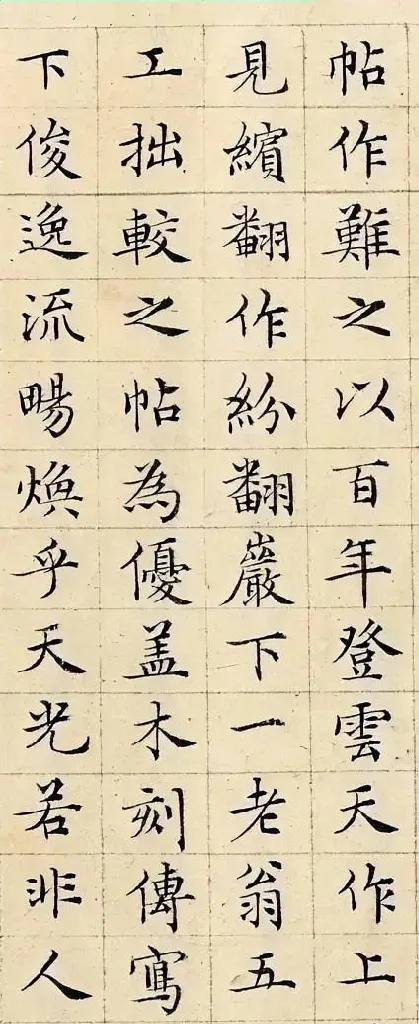 帖作難之以百年登雲天作上
見繽翻作紛翻巖下一老翁五
工拙較之帖為優盖木刻傳寫
下俊逸流暢煥乎天光若非人